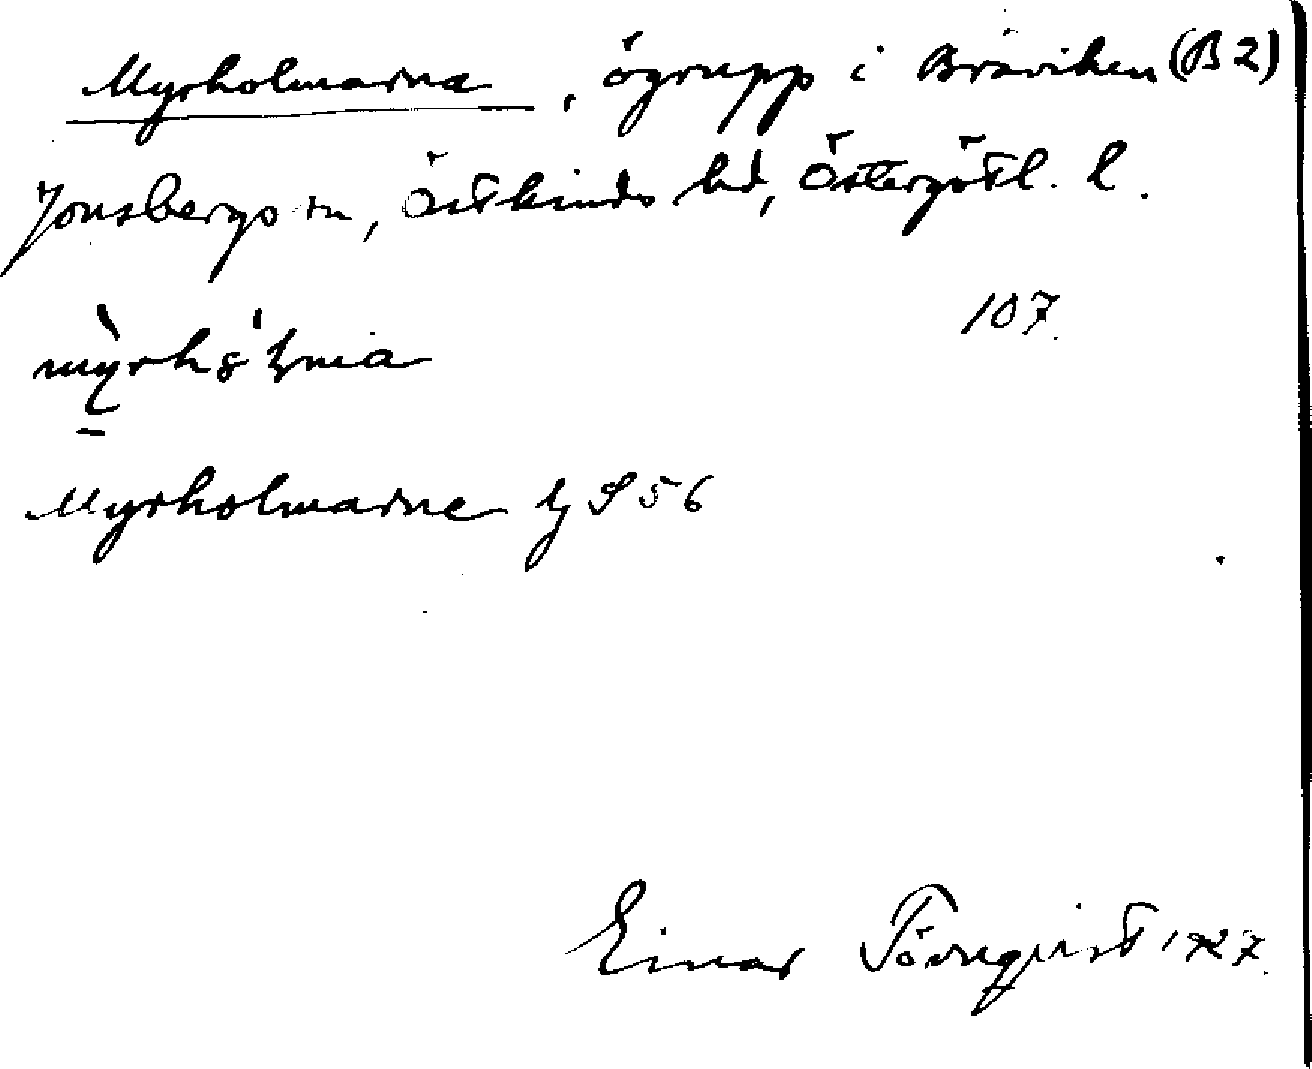 Myrholmarna, ögrupp i Bråviken (B2)
Jonsbergs sn, Östkinds hd, Östergötl. l.
107
Myrholmarne GS 56
Einar Törnqvist 1927